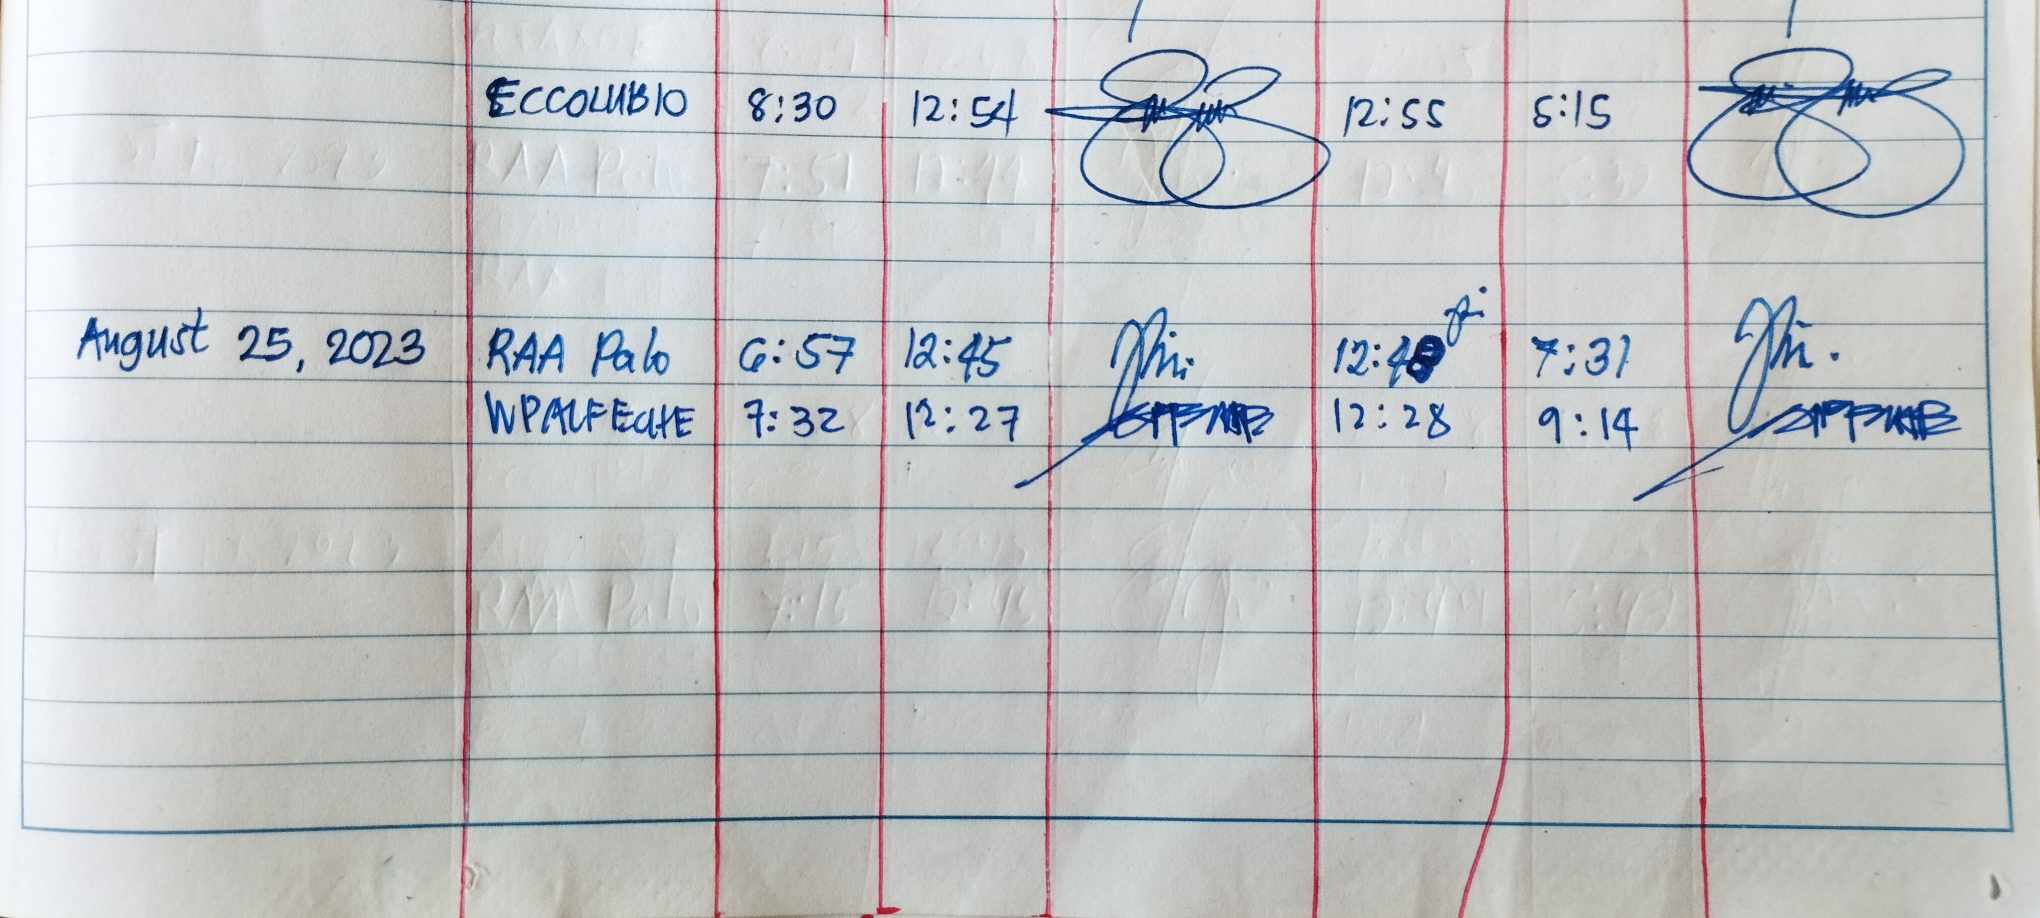 ECCOLUBIO 8:30 12:54 12:55 5:15
August 25, 2023 RAA Palo 6:57 12:45 12:48 7:31
WPALFECHE 7:32 12:27 12:28 9:14